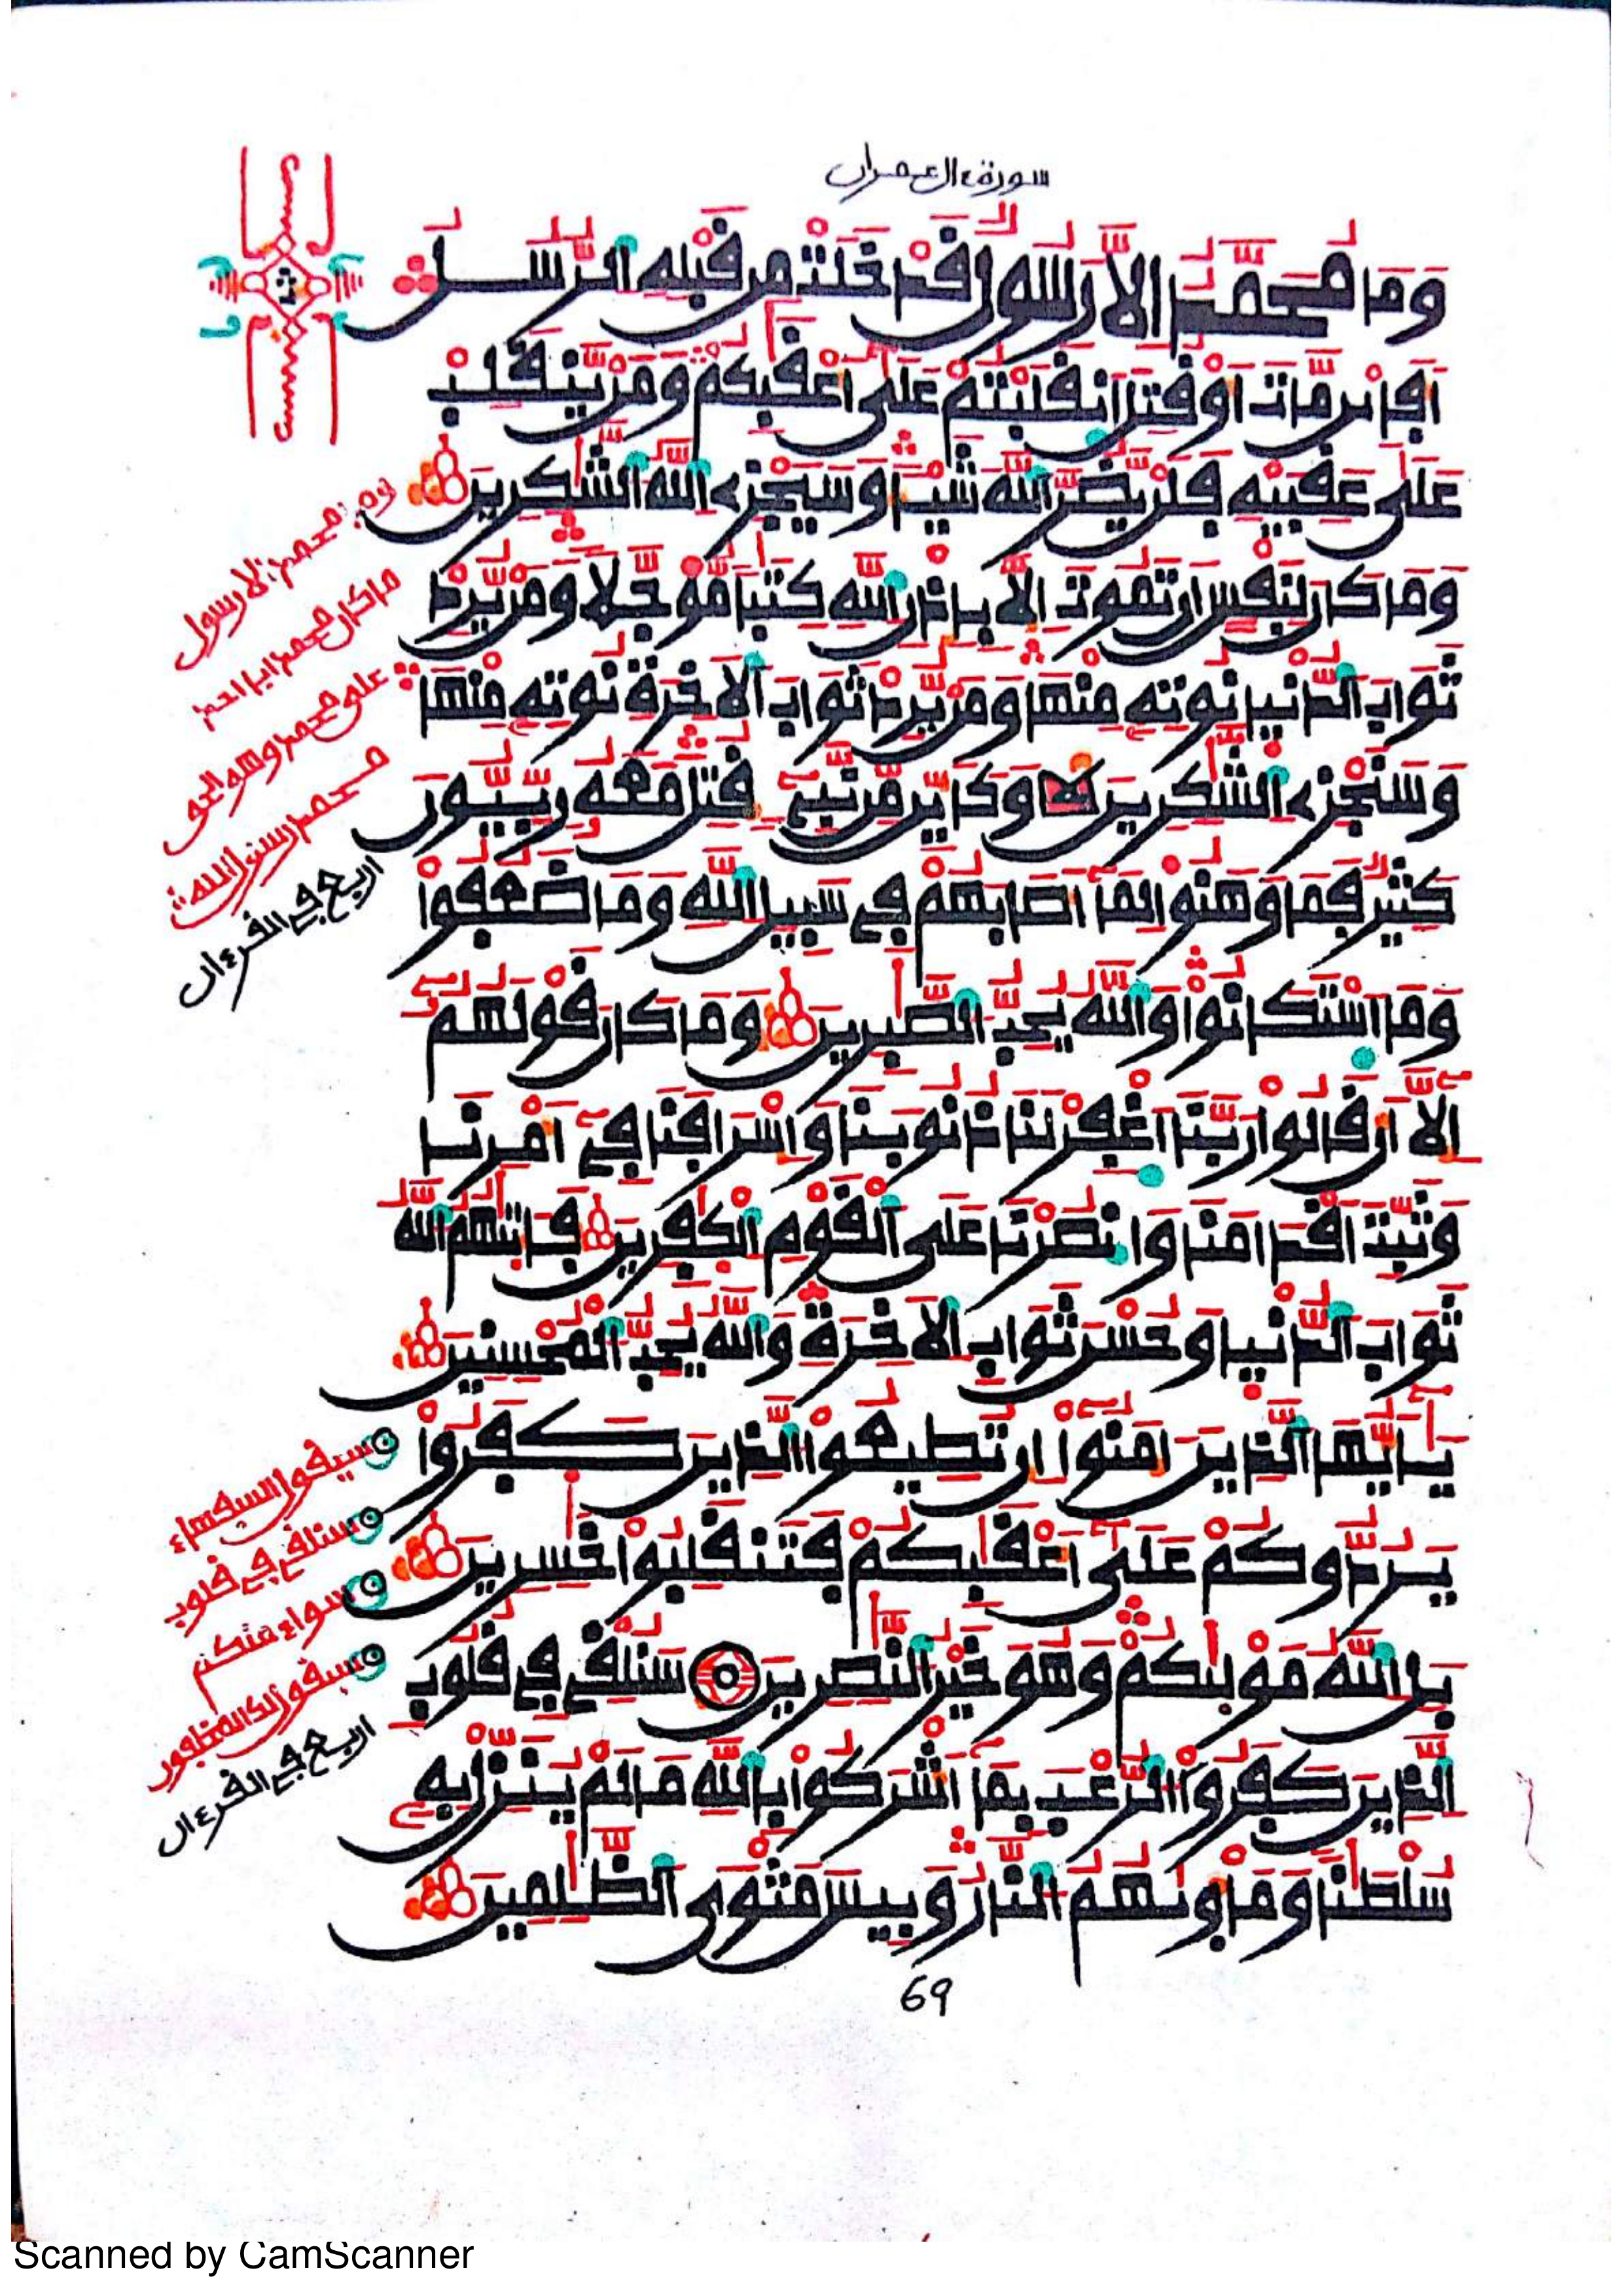 سورة ءال عمران
وَمَا مُحَمَّدٌ اِلَّا رَسُولٌ قَدْ خَلَتْ مِن قَبْلِهِ اِ۬لرُّسُلُ
أَفَإِيْن مَّاتَ أَوْ قُتِلَ اَ۪نقَلَبْتُمْ عَلَىٰ أَعْقَٰبِكُمْ وَمَنْ يَّنقَلِبْ
عَلَىٰ عَقِبَيْهِ فَلَنْ يَّضُرَّ اَ۬للَّهَ شَيْـٔاً وَسَيَجْزِے اِ۬للَّهُ اُ۬لشَّٰكِرِينَ
وَمَا كَانَ لِنَفْسٍ اَن تَمُوتَ إِلَّا بِإِذْنِ اِ۬للَّهِ كِتَٰباً مُّوَجَّلاً وَمَنْ يُّرِدْ
ثَوَابَ اَ۬لدُّنْيَا نُوتِهِ مِنْهَا وَمَنْ يُّرِدْ ثَوَابَ اَ۬لَاخِرَةِ نُوتِهِ مِنْهَا
وَسَنَجْزِے اِ۬لشَّٰكِرِينَ وَكَأَيِّن مِّن نَّبِےٓءٍ قُتِلَ مَعَهُۥ رِبِّيُّونَ
كَثِيرٌ فَمَا وَهَنُواْ لِمَا أَصَابَهُمْ فِے سَبِيلِ اِ۬للَّهِ وَمَا ضَعُفُواْ
وَمَا اَ۪سْتَكَانُواْ وَاللَّهُ يُحِبُّ اُ۬لصَّٰبِرِينَ وَمَا كَانَ قَوْلَهُمُۥٓ
إِلَّا أَن قَالُواْ رَبَّنَا اَ۪غْفِرْ لَنَا ذُنُوبَنَا وَإِسْرَافَنَا فِےٓ أَمْرِنَا
وَثَبِّتَ اَقْدَامَنَا وَانصُرْنَا عَلَى اَ۬لْقَوْمِ اِ۬لْكٰفِرِينَ فَـَٔاتَىٰهُمُ اُ۬للَّهُ
ثَوَابَ اَ۬لدُّنْيَا وَحُسْنَ ثَوَابِ اِ۬لَاخِرَةِ وَاللَّهُ يُحِبُّ اُ۬لْمُحْسِنِينَ
يَٰٓأَيُّهَا اَ۬لذِينَ ءَامَنُوٓاْ إِن تُطِيعُواْ اُ۬لذِينَ كَفَرُواْ
يَرُدُّوكُمْ عَلَىٰٓ أَعْقَٰبِكُمْ فَتَنقَلِبُواْ خَٰسِرِينَ
بَلِ اِ۬للَّهُ مَوْلَىٰكُمْ وَهُوَ خَيْرُ اُ۬لنَّٰصِرِينَ سَنُلْقِے فِے قُلُوبِ
اِ۬لذِينَ كَفَرُواْ اُ۬لرُّعْبَ بِمَآ أَشْرَكُواْ بِاللَّهِ مَا لَمْ يُنَزِّلْ بِهِۦ
سُلْطَٰناً وَمَأْوَىٰهُمُ اُ۬لنَّارُ وَبِيسَ مَثْوَى اَ۬لظَّٰلِمِينَ
69
وما محمد الا رسول
ما كان محمد ابا احد
على محمد وهو الحق
محمد رسول الله
اربع في القرءان
سيقول السفهاء
سنلقي في قلوب
سواء منكم
سيقول لك المخلفون
اربع في القرءان
Scanned by CamScanner